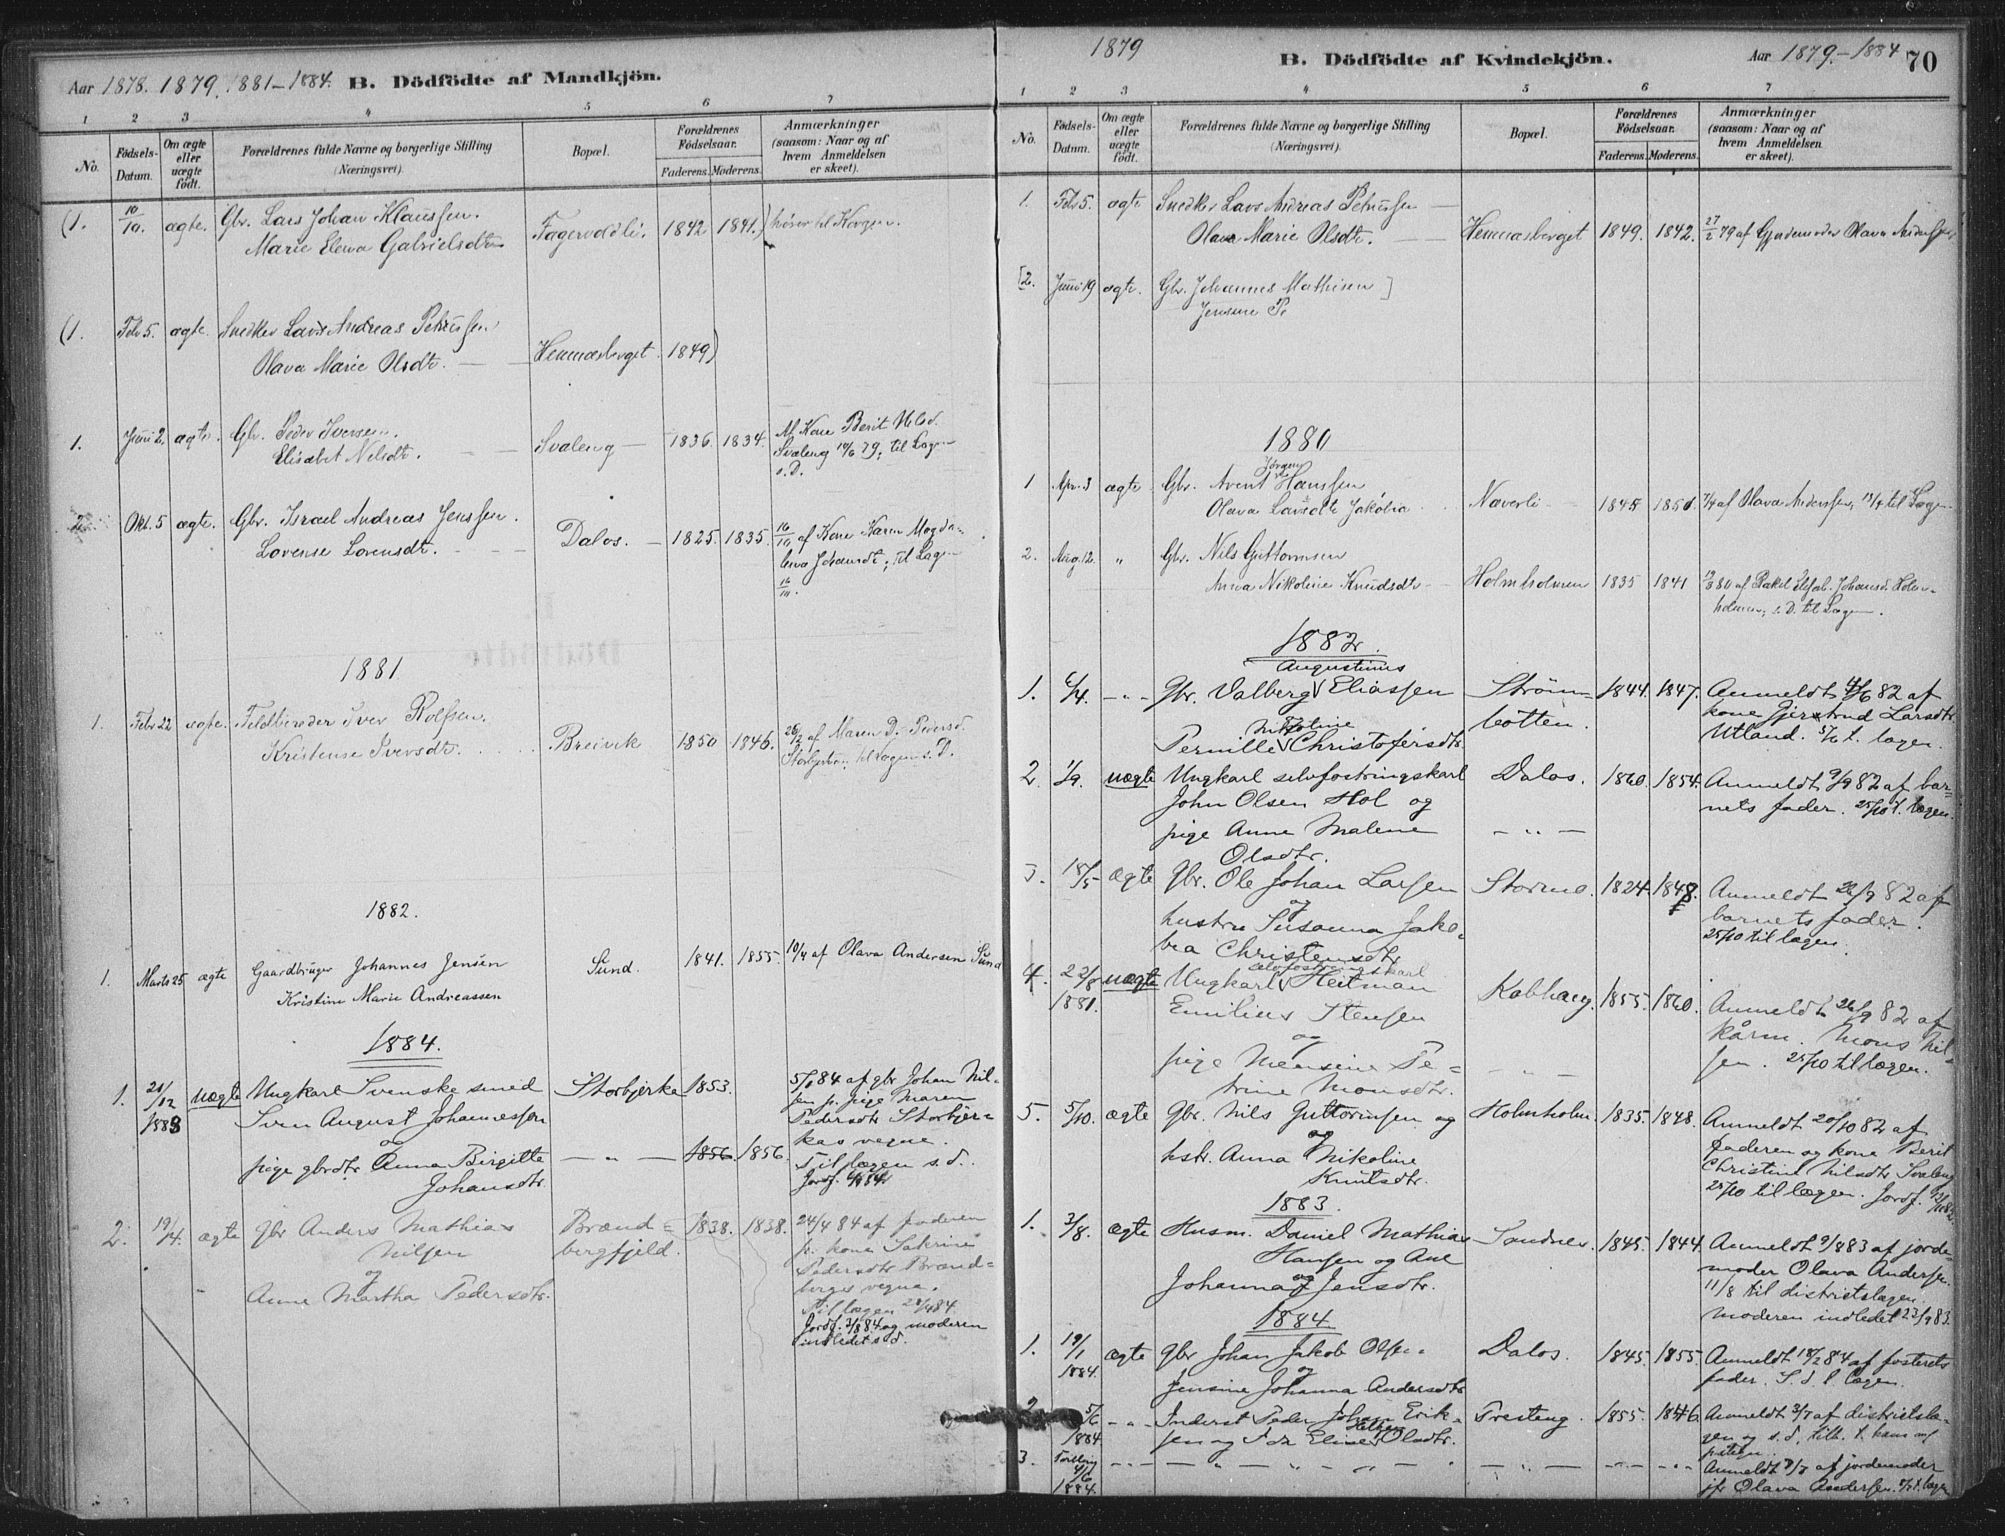 Aar 1878. 1879. 1881-1884. B. Dödfödte af Mandkjön.
1 2 3 4 5 6 7
No. Födsels-Datum. Om ægte eller uægte födt. Forældrenes fulde Navne og borgerlige Stilling (Næringsvei). Bopæl. Forældrenes Födselsaar. Faderens. Moderens. Anmærkninger (saasom: Naar og af hvem Anmeldelsen er skeet).
(1. 10/10. ægte. Gbr. Lars Johan Klaussen. Fagervoldli. 1842 1841.) hörer til Korgen.
Marie Elena Gabrielsdtr
(1. Febr 5. ægte. Snedker Lars Andreas Petersen
Olava Marie Olsdtr. Hemnæsberget 1849)
1. Juni 2. ægte. Gbr. Peder Iversen. Svaleng 1836. 1834. At Kone Berit Nilsd.
Elisabet Nilsdtr. Svaleng 10/6 79, til Lægen
s.D.
2. Okt. 5 ægte. Gbr. Israel Andreas Jenssen. Dalos. 1825. 1835. 16/10 af Kone Karen Magda-
Lovense Lorensdtr. lena Johansdtr; til Lægen
16/10.
1881
1. Febr 22 ægte. Feldbereder Iver Rolfsen. Breivik 1850 1846. 26/2 af Maren D. Peversd.
Kristense Iversdtr. Storbjerka; til Lægen s. D.
1882.
1. Marts 25 ægte Gaardbruger Johannes Jensen Sund. 1841. 1855. 10/4 af Olava Andersen Sund
Kristine Marie Andreassen
1884.
1. 21/12 1883 uægte Ungkarl Svenske smed Storbjerka 1853. 5/1 84 af gbr Johan Nil-
Sven August Johannessen sen p. pige Maren
og Pedersdtr Storbjer-
kas vegne.
pige gbrdtr. Anna Birgitte — " — 1856. 1856. Til lægen s.d.
Johansdtr. Jordf.
2. 19/4. ægte gbr Anders Mathias Brænd- 1838. 1838. 24/4 84 af faderen
Nilsen bergfjeld. p. kone Sakrine
og Pedersdtr Brænd-
Anne Martha Pedersdtr. bergs vegne.
Til lægen 24/4 84.
Jordf. 3/8 84 og moderen
indledet s.d.
1879 B. Dödfödte af Kvindekjön. Aar 1879.-1884 70
1 2 3 4 5 6 7
No. Födsels-Datum. Om ægte eller uægte födt. Forældrenes fulde Navne og borgerlige Stilling (Næringsvei). Bopæl. Forældrenes Födselsaar. Faderens. Moderens. Anmærkninger (saasom: Naar og af hvem Anmeldelsen er skeet).
1. Febr 5. ægte Snedker Lars Andreas Petersen
Olava Marie Olsdtr. Hemnæsberget 1849. 1842. 27/2 79 af Gjordemoder Olava Andersen
[2. Juni 19 ægte. Gbr. Johannes Mathisen ]
Jensine P
1880
1 Apr. 3 ægte Gbr. Arent Jörgen Hanssen
Olava Larsdtr Jakobia Naverli 1845 1851. 7/4 af Olava Andersen, 13/4 til Lægen
2. Aug. 12. " Gbr. Nils Guttormsen
Anna Nikoline Knudsdtr Holmholmen 1835 1841 19/8 80 af Rakel Johansd. Holm-
holmen; s. D. til Lægen.
1882.
1. 6/4. — " — Gbr. Valberg Augustinus Eliassen Ström- 1844. 1847. Anmeldt 4/6 82 af
Pernille Nikoline Christofersdtr. botten. kone Gjertrud Larsdtr
Utland. 5/6 t. lægen.
2. 1/9. uægte Ungkarl selvfostringskarl Dalos. 1860. 1854. Anmeldt 9/9 82 af bar-
John Olsen Hol og nets fader. 25/10 t. lægen.
pige Anne Malene — " —
Olsdtr.
3. 18/5 ægte Gbr. Ole Johan Larsen Stormo. 1824. 1848 Anmeldt 24/9 82 af
og barnets fader.
hustru Susanna Jako- 25/10 til lægen.
bea Christensdtr
4. 22/8 1881. uægte Ungkarl selvfostringskarl Heitman Kobhaug. 1855. 1860. Anmeldt 26/9 82 af
Emilius Stensen kårm. Mons Nil-
og sen. 25/10 til lægen.
pige Mensine Pe- — " —
trine Monsdtr.
5. 5/10. ægte Gbr. Nils Guttormsen og Holmholm. 1835. 1848. Anmeldt 20/10 82 af
og faderen og kone Berit
hstr. Anna Nikoline Christine Nilsdtr Svaleng
Knutsdtr. 25/10 til lægen. Jordf.
1883.
1. 3/8. ægte Husm. Daniel Mathias Sandnes. 1845. 1844. Anmeldt 9/8 83 af jorde-
Hansen og Ane moder Olava Andersen.
Johanna Jensdtr. 11/8 til distriktslægen.
moderen indledet 23/9 83.
1884
1. 19/1 1884. ægte Gbr Johan Jakob Olsen Dalos. 1845. 1855. Anmeldt 18/2 84 af fosterets
og fader. S. d. t. lægen.
Jensine Johanna Andersdtr
2 5/6 1884 — " — Inderst Peder Johan Erik- Presteng. 1855. 1846 Anmeldt 3/7 af distriktslæ-
sen og Ida Elise Olsdtr. gen og s.d. tilb. t. ham
3. Tvilling 4/6 1884. — " — — " — Anmeldt 8/7 af jordemoder
jfr Olava Andersen. t. lægen